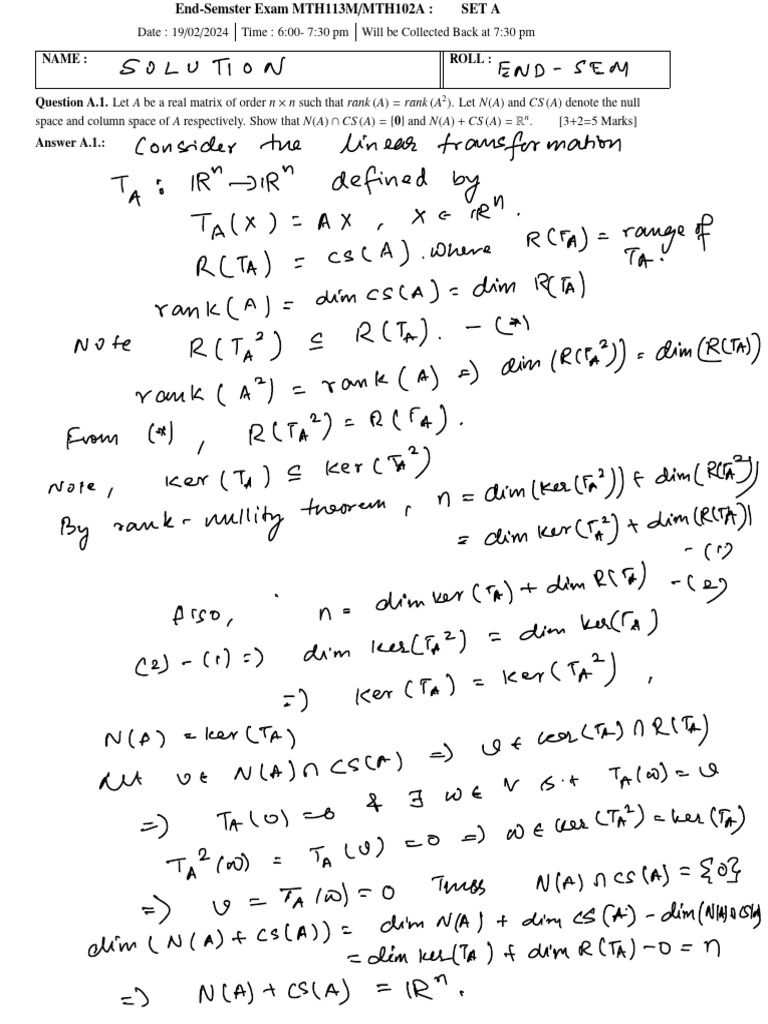 End-Semster Exam MTH113M/MTH102A : SET A
Date : 19/02/2024 | Time : 6:00- 7:30 pm | Will be Collected Back at 7:30 pm
NAME : SOLUTION ROLL : END-SEM
Question A.1. Let A be a real matrix of order n × n such that rank (A) = rank (A²). Let N(A) and CS (A) denote the null
space and column space of A respectively. Show that N(A) ∩ CS (A) = {0} and N(A) + CS (A) = ℝⁿ. [3+2=5 Marks]
Answer A.1.: Consider the linear transformation
T_A : ℝⁿ → ℝⁿ defined by
T_A(x) = Ax , x ∈ ℝⁿ.
R(T_A) = CS(A). where R(T_A) = range of T_A.
rank(A) = dim CS(A) = dim R(T_A)
Note R(T_A²) ⊆ R(T_A). - (*)
rank(A²) = rank(A) => dim(R(T_A²)) = dim(R(T_A))
From (*), R(T_A²) = R(T_A).
Note, ker(T_A) ⊆ ker(T_A²)
By rank-nullity theorem, n = dim(ker(T_A²)) + dim(R(T_A²))
= dim ker(T_A²) + dim(R(T_A)) - (1)
Also, n = dim ker(T_A) + dim R(T_A) - (2)
(2) - (1) => dim ker(T_A²) = dim ker(T_A)
=> ker(T_A) = ker(T_A²),
N(A) = ker(T_A)
Let v ∈ N(A) ∩ CS(A) => v ∈ ker(T_A) ∩ R(T_A)
=> T_A(v) = 0 & ∃ w ∈ V s.t T_A(w) = v
T_A²(w) = T_A(v) = 0 => w ∈ ker(T_A²) = ker(T_A)
=> v = T_A(w) = 0 Thus N(A) ∩ CS(A) = {0}
dim(N(A) + CS(A)) = dim N(A) + dim CS(A) - dim(N(A) ∩ CS(A))
= dim ker(T_A) + dim R(T_A) - 0 = n
=> N(A) + CS(A) = ℝⁿ.